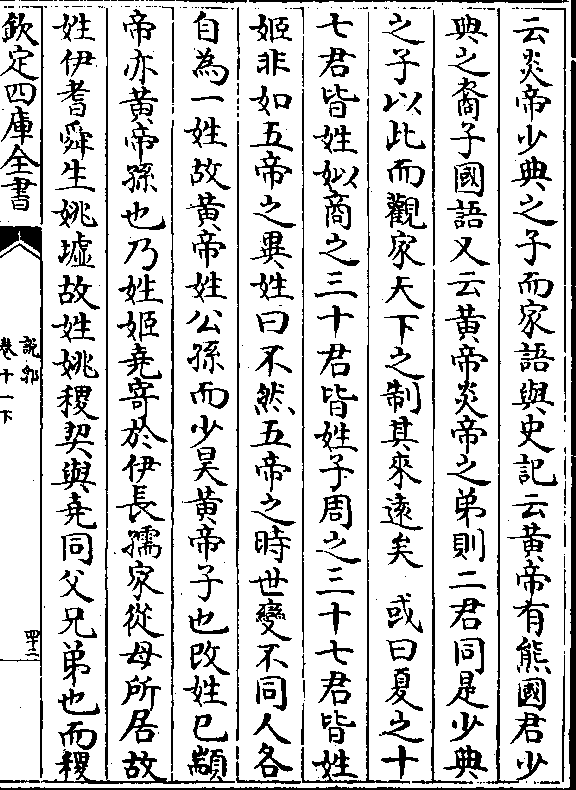 云炎帝少典之子而家語與史記云黄帝有熊國君少
典之裔子國語又云黄帝炎帝之弟則二君同是少典
之子以此而觀家天下之制其來逺矣　或曰夏之十
七君皆姓姒商之三十君皆姓子周之三十七君皆姓
姬非如五帝之異姓曰不然五帝之時世變不同人各
自為一姓故黄帝姓公孫而少昊黄帝子也改姓已顓
帝亦黄帝孫也乃姓姬堯寄於伊長孺家從母所居故
姓伊耆舜生姚墟故姓姚稷契與堯同父兄弟也而稷
欽定四庫全書
說郛
卷十一下
四十三